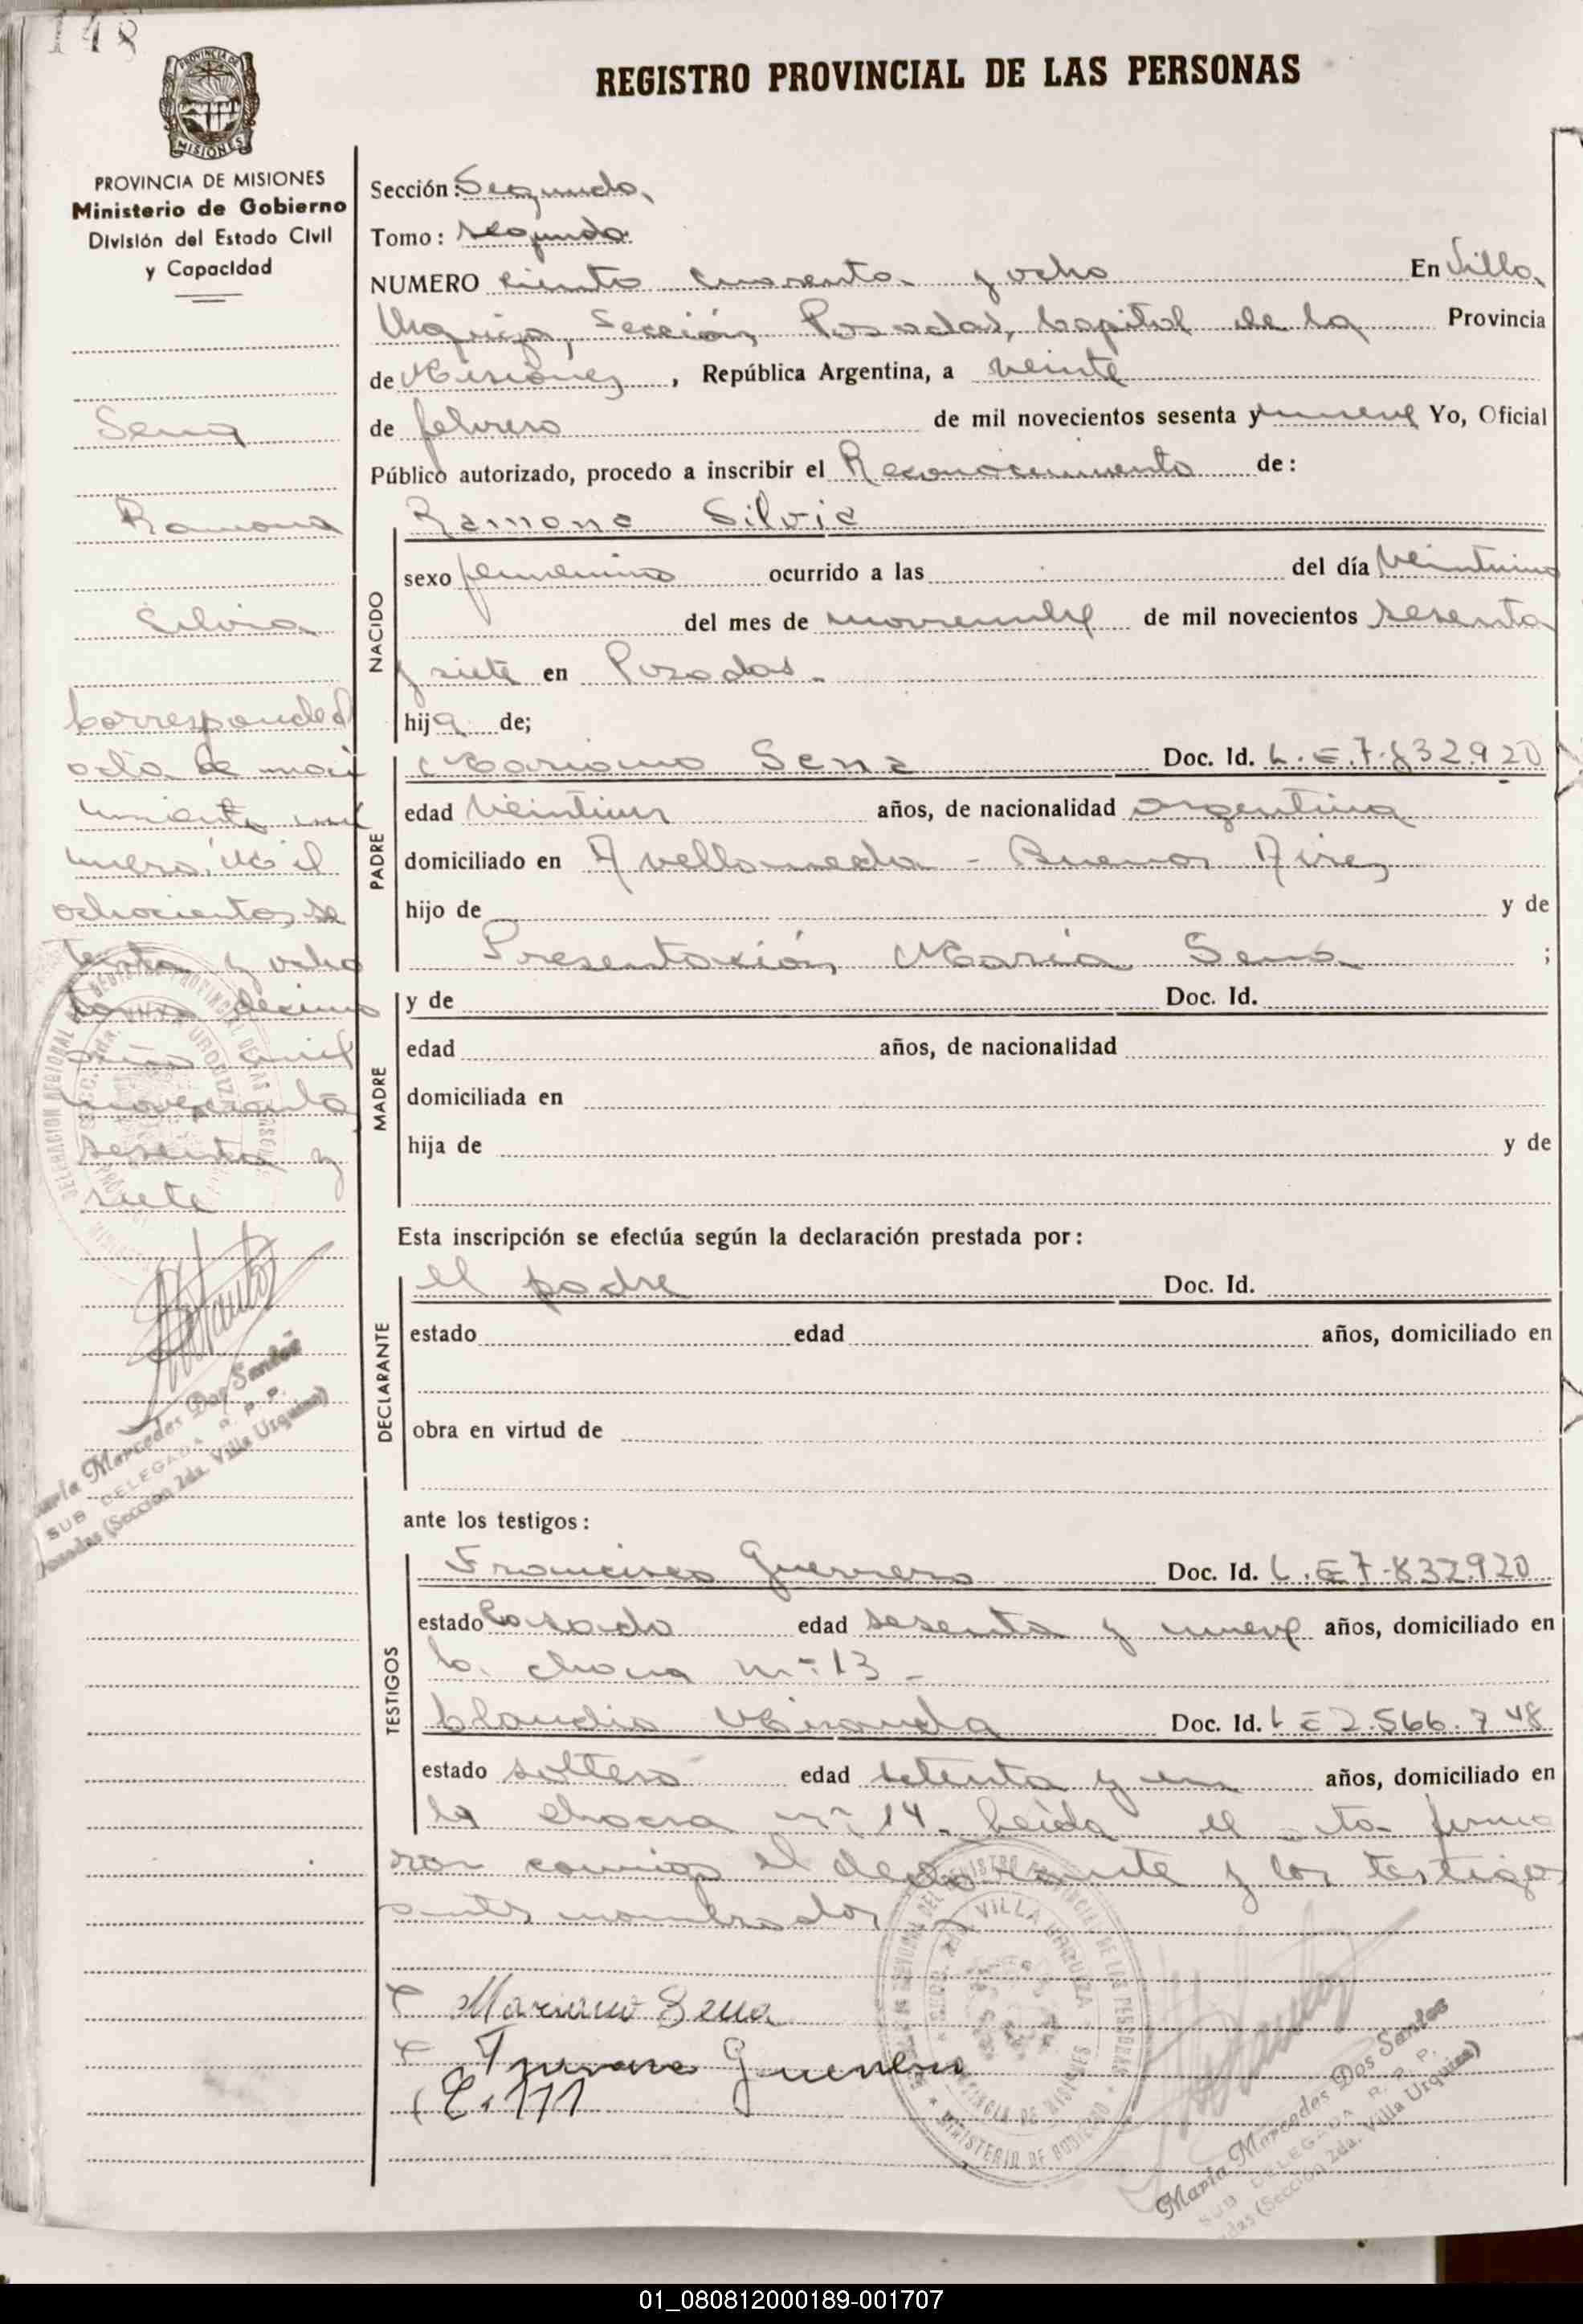 148
PROVINCIA DE
MISIONES
REGISTRO PROVINCIAL DE LAS PERSONAS
PROVINCIA DE MISIONES
Ministerio de Gobierno
División del Estado Civil
y Capacidad
Sena
Ramona
Silvia
Corresponde al
acta de naci
miento nú
mero: Mil
ochocientos se
tenta y ocho
tomo décimo
año mil
novecientos
sesenta y
siete
María Mercedes Dos Santos
SUB DELEGADA R. P. P.
Posadas (Sección 2da. Villa Urquiza)
Sección: Segunda,
Tomo: segundo
NUMERO ciento cuarenta y ocho En Villa
Urquiza, Sección Posadas, Capital de la Provincia
de Misiones, República Argentina, a veinte
de febrero de mil novecientos sesenta y nueve Yo, Oficial
Público autorizado, procedo a inscribir el Reconocimiento de:
NACIDO
Ramona Silvia
sexo femenino ocurrido a las del día veintiuno
del mes de noviembre de mil novecientos sesenta
y siete en Posadas.
hija de;
PADRE
Mariano Sena Doc. Id. L. E. 7.832.920
edad veintiun años, de nacionalidad argentina
domiciliado en Avellaneda - Buenos Aires
hijo de y de
Presentación María Sena ;
MADRE
y de Doc. Id.
edad años, de nacionalidad
domiciliada en
hija de y de
Esta inscripción se efectúa según la declaración prestada por:
DECLARANTE
el padre Doc. Id.
estado edad años, domiciliado en
obra en virtud de
ante los testigos:
TESTIGOS
Francisco Guerrero Doc. Id. L. E 7.832.920
estado Casado edad sesenta y nueve años, domiciliado en
la chacra nº 13 -
Claudio Miranda Doc. Id. L E 2.566.748
estado soltero edad setenta y un años, domiciliado en
la chacra nº 14. Leída el acta firma
ron conmigo el declarante y los testigos
antes nombrados
Mariano Sena
Guerrero
VILLA URQUIZA
PROVINCIA DE MISIONES
MINISTERIO DE GOBIERNO
María Mercedes Dos Santos
SUB DELEGADA R. P. P.
(Sección 2da. Villa Urquiza)
01_080812000189-001707